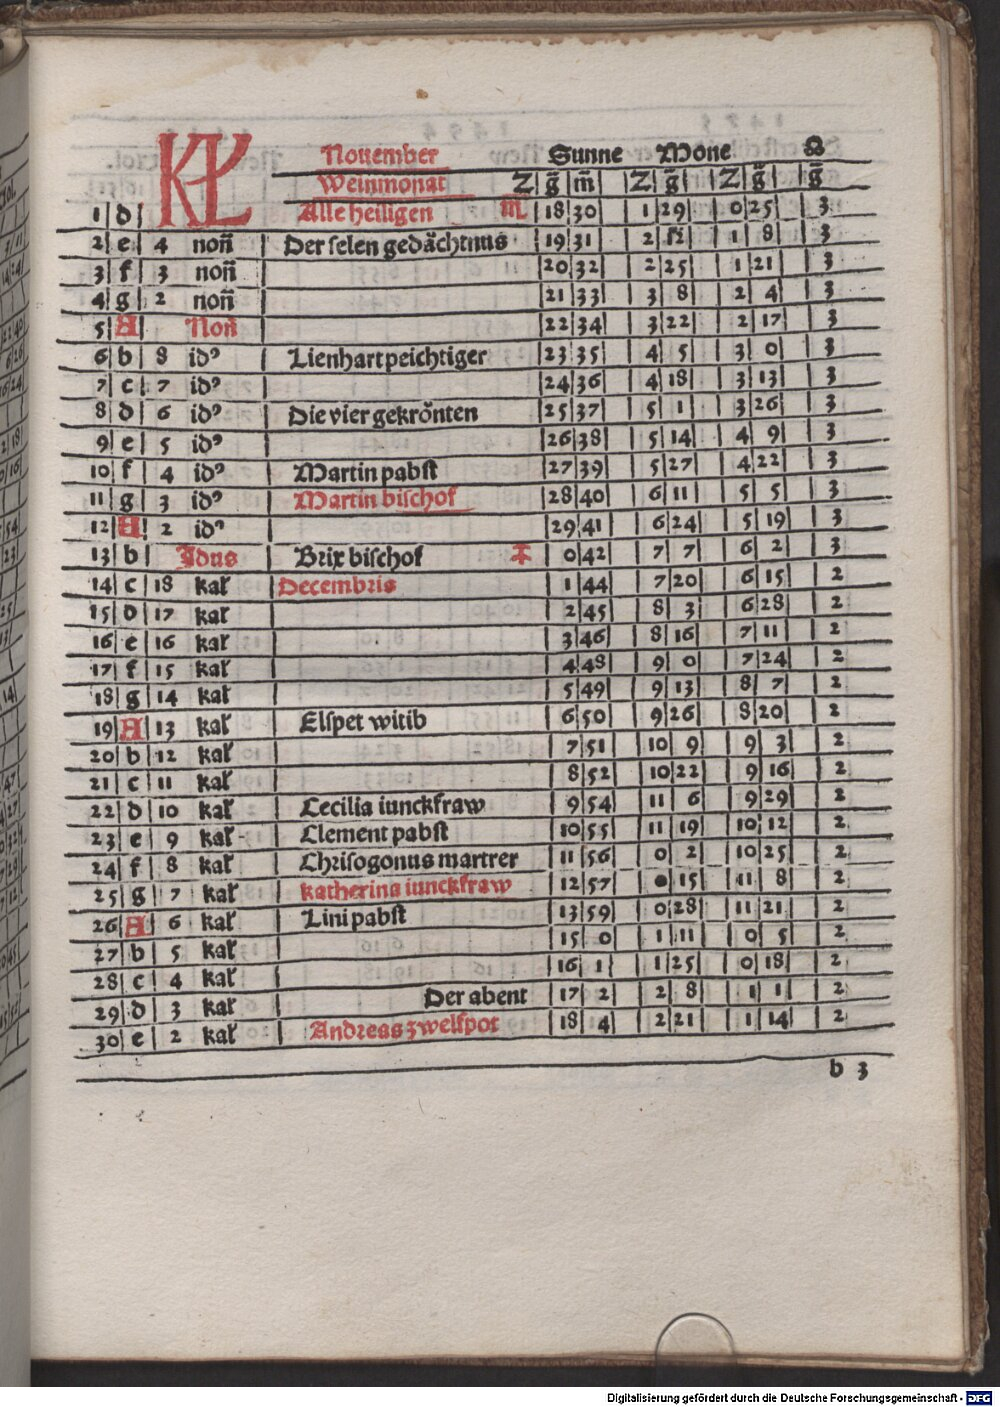 KL November Sunne Mone ☊
Weinmonat Z g̃ m̃ Z g̃ Z g̃ g̃
1 d Alle heiligen ♏ 18 30 1 29 0 25 3
2 e 4 non̄ Der selen gedächtnus 19 31 2 12 1 8 3
3 f 3 non̄ 20 32 2 25 1 21 3
4 g 2 non̄ 21 33 3 8 2 4 3
5 A Non̄ 22 34 3 22 2 17 3
6 b 8 idꝰ Lienhart peichtiger 23 35 4 5 3 0 3
7 c 7 idꝰ 24 36 4 18 3 13 3
8 d 6 idꝰ Die vier gekrönten 25 37 5 1 3 26 3
9 e 5 idꝰ 26 38 5 14 4 9 3
10 f 4 idꝰ Martin pabst 27 39 5 27 4 22 3
11 g 3 idꝰ Martin bischof 28 40 6 11 5 5 3
12 A 2 idꝰ 29 41 6 24 5 19 3
13 b Idus Brix bischof ♐ 0 42 7 7 6 2 3
14 c 18 kal Decembris 1 44 7 20 6 15 2
15 d 17 kal 2 45 8 3 6 28 2
16 e 16 kal 3 46 8 16 7 11 2
17 f 15 kal 4 48 9 0 7 24 2
18 g 14 kal 5 49 9 13 8 7 2
19 A 13 kal Elspet witib 6 50 9 26 8 20 2
20 b 12 kal 7 51 10 9 9 3 2
21 c 11 kal 8 52 10 22 9 16 2
22 d 10 kal Cecilia iunckfraw 9 54 11 6 9 29 2
23 e 9 kal Clement pabst 10 55 11 19 10 12 2
24 f 8 kal Chrisogonus martrer 11 56 0 2 10 25 2
25 g 7 kal katherina iunckfraw 12 57 0 15 11 8 2
26 A 6 kal Lini pabst 13 59 0 28 11 21 2
27 b 5 kal 15 0 1 11 0 5 2
28 c 4 kal 16 1 1 25 0 18 2
29 d 3 kal Der abent 17 2 2 8 1 1 2
30 e 2 kal Andreas zwelfpot 18 4 2 21 1 14 2
b 3
Digitalisierung gefördert durch die Deutsche Forschungsgemeinschaft - DFG